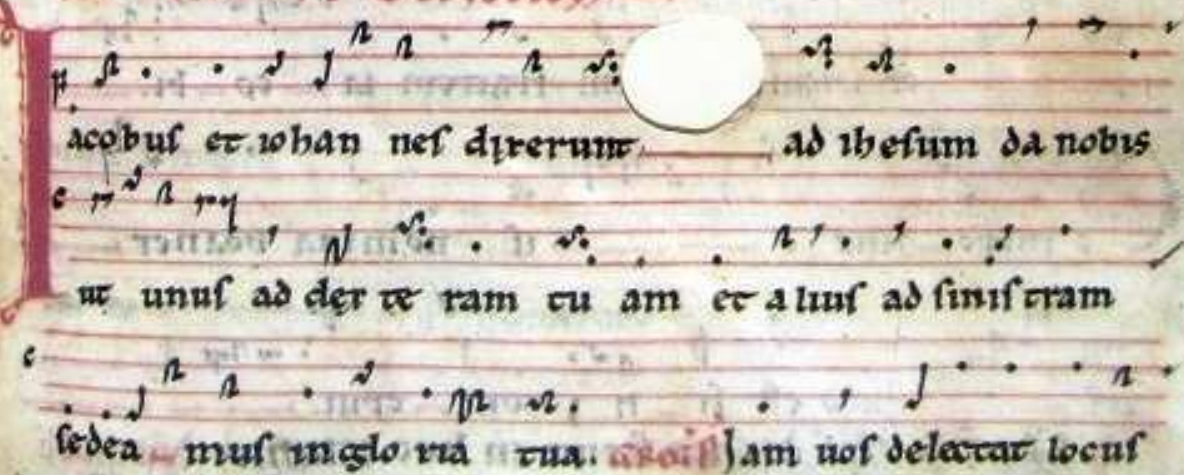 Iacobus et iohannes dixerunt ad ihesum da nobis
ut unus ad dexteram tuam et alius ad sinistram
sedeamus in gloria tua. Iam uos delectat locus